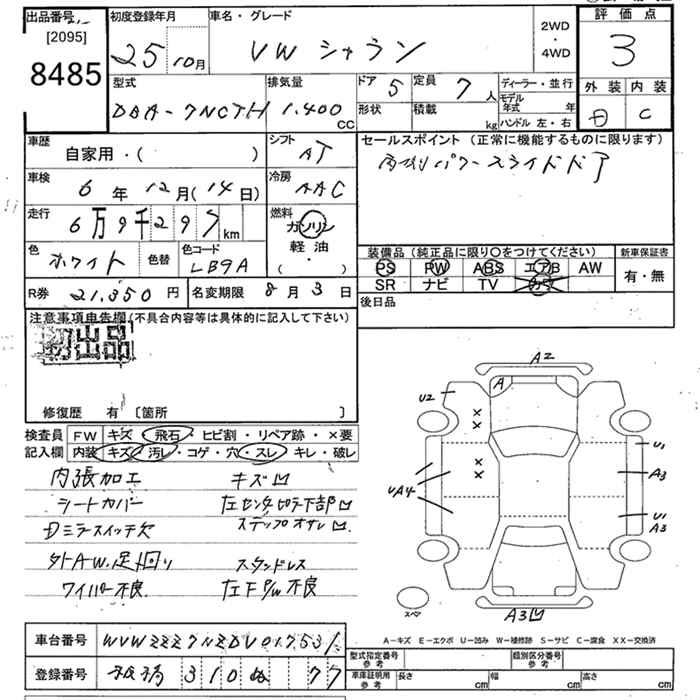 出品番号
[2095]
8485
初度登録年月
25 10月
車名・グレード
VW シャラン
2WD
・
4WD
評価点
3
外装 内装
D C
型式
DBA-7NCTH
排気量
1.400 CC
ドア 5
形状
定員 7人
積載 kg
ディーラー・並行
モデル年式 年
ハンドル 左・右
車歴
自家用・( )
シフト
AT
セールスポイント (正常に機能するものに限ります)
両側パワースライドドア
車検
6年 12月(14日)
冷房
AAC
走行
6万9千297km
燃料
ガソリン
軽油
( )
色
ホワイト
色替
色コード
LB9A
装備品 (純正品に限り○をつけてください)
PS PW ABS エアB AW
SR ナビ TV カワ
新車保証書
有・無
R券 21,350円
名変期限 8月3日
後日品
注意事項申告欄(不具合内容等は具体的に記入して下さい)
初出品
修復歴 有 〔箇所 〕
検査員
記入欄
FW キズ・飛石・ヒビ割・リペア跡・×要
内装 キズ・汚レ・コゲ・穴・スレ・キレ・破レ
内張加工
シートカバー
Dミラースイッチ欠
外AW.足回り
ワイパー不良
キズ凹
ステップオサレ凹
スタンドレス
左F P/W不良
A2
A
U2
UA4
U1
A3
U1
A3
A3凹
スペア
A-キズ E-エクボ U-凹み W-補修跡 S-サビ C-腐食 XX-交換済
車台番号
登録番号
310 77
型式指定番号
参考
類別区分番号
参考
車庫証明用
参考
長さ cm 幅 cm 高さ cm